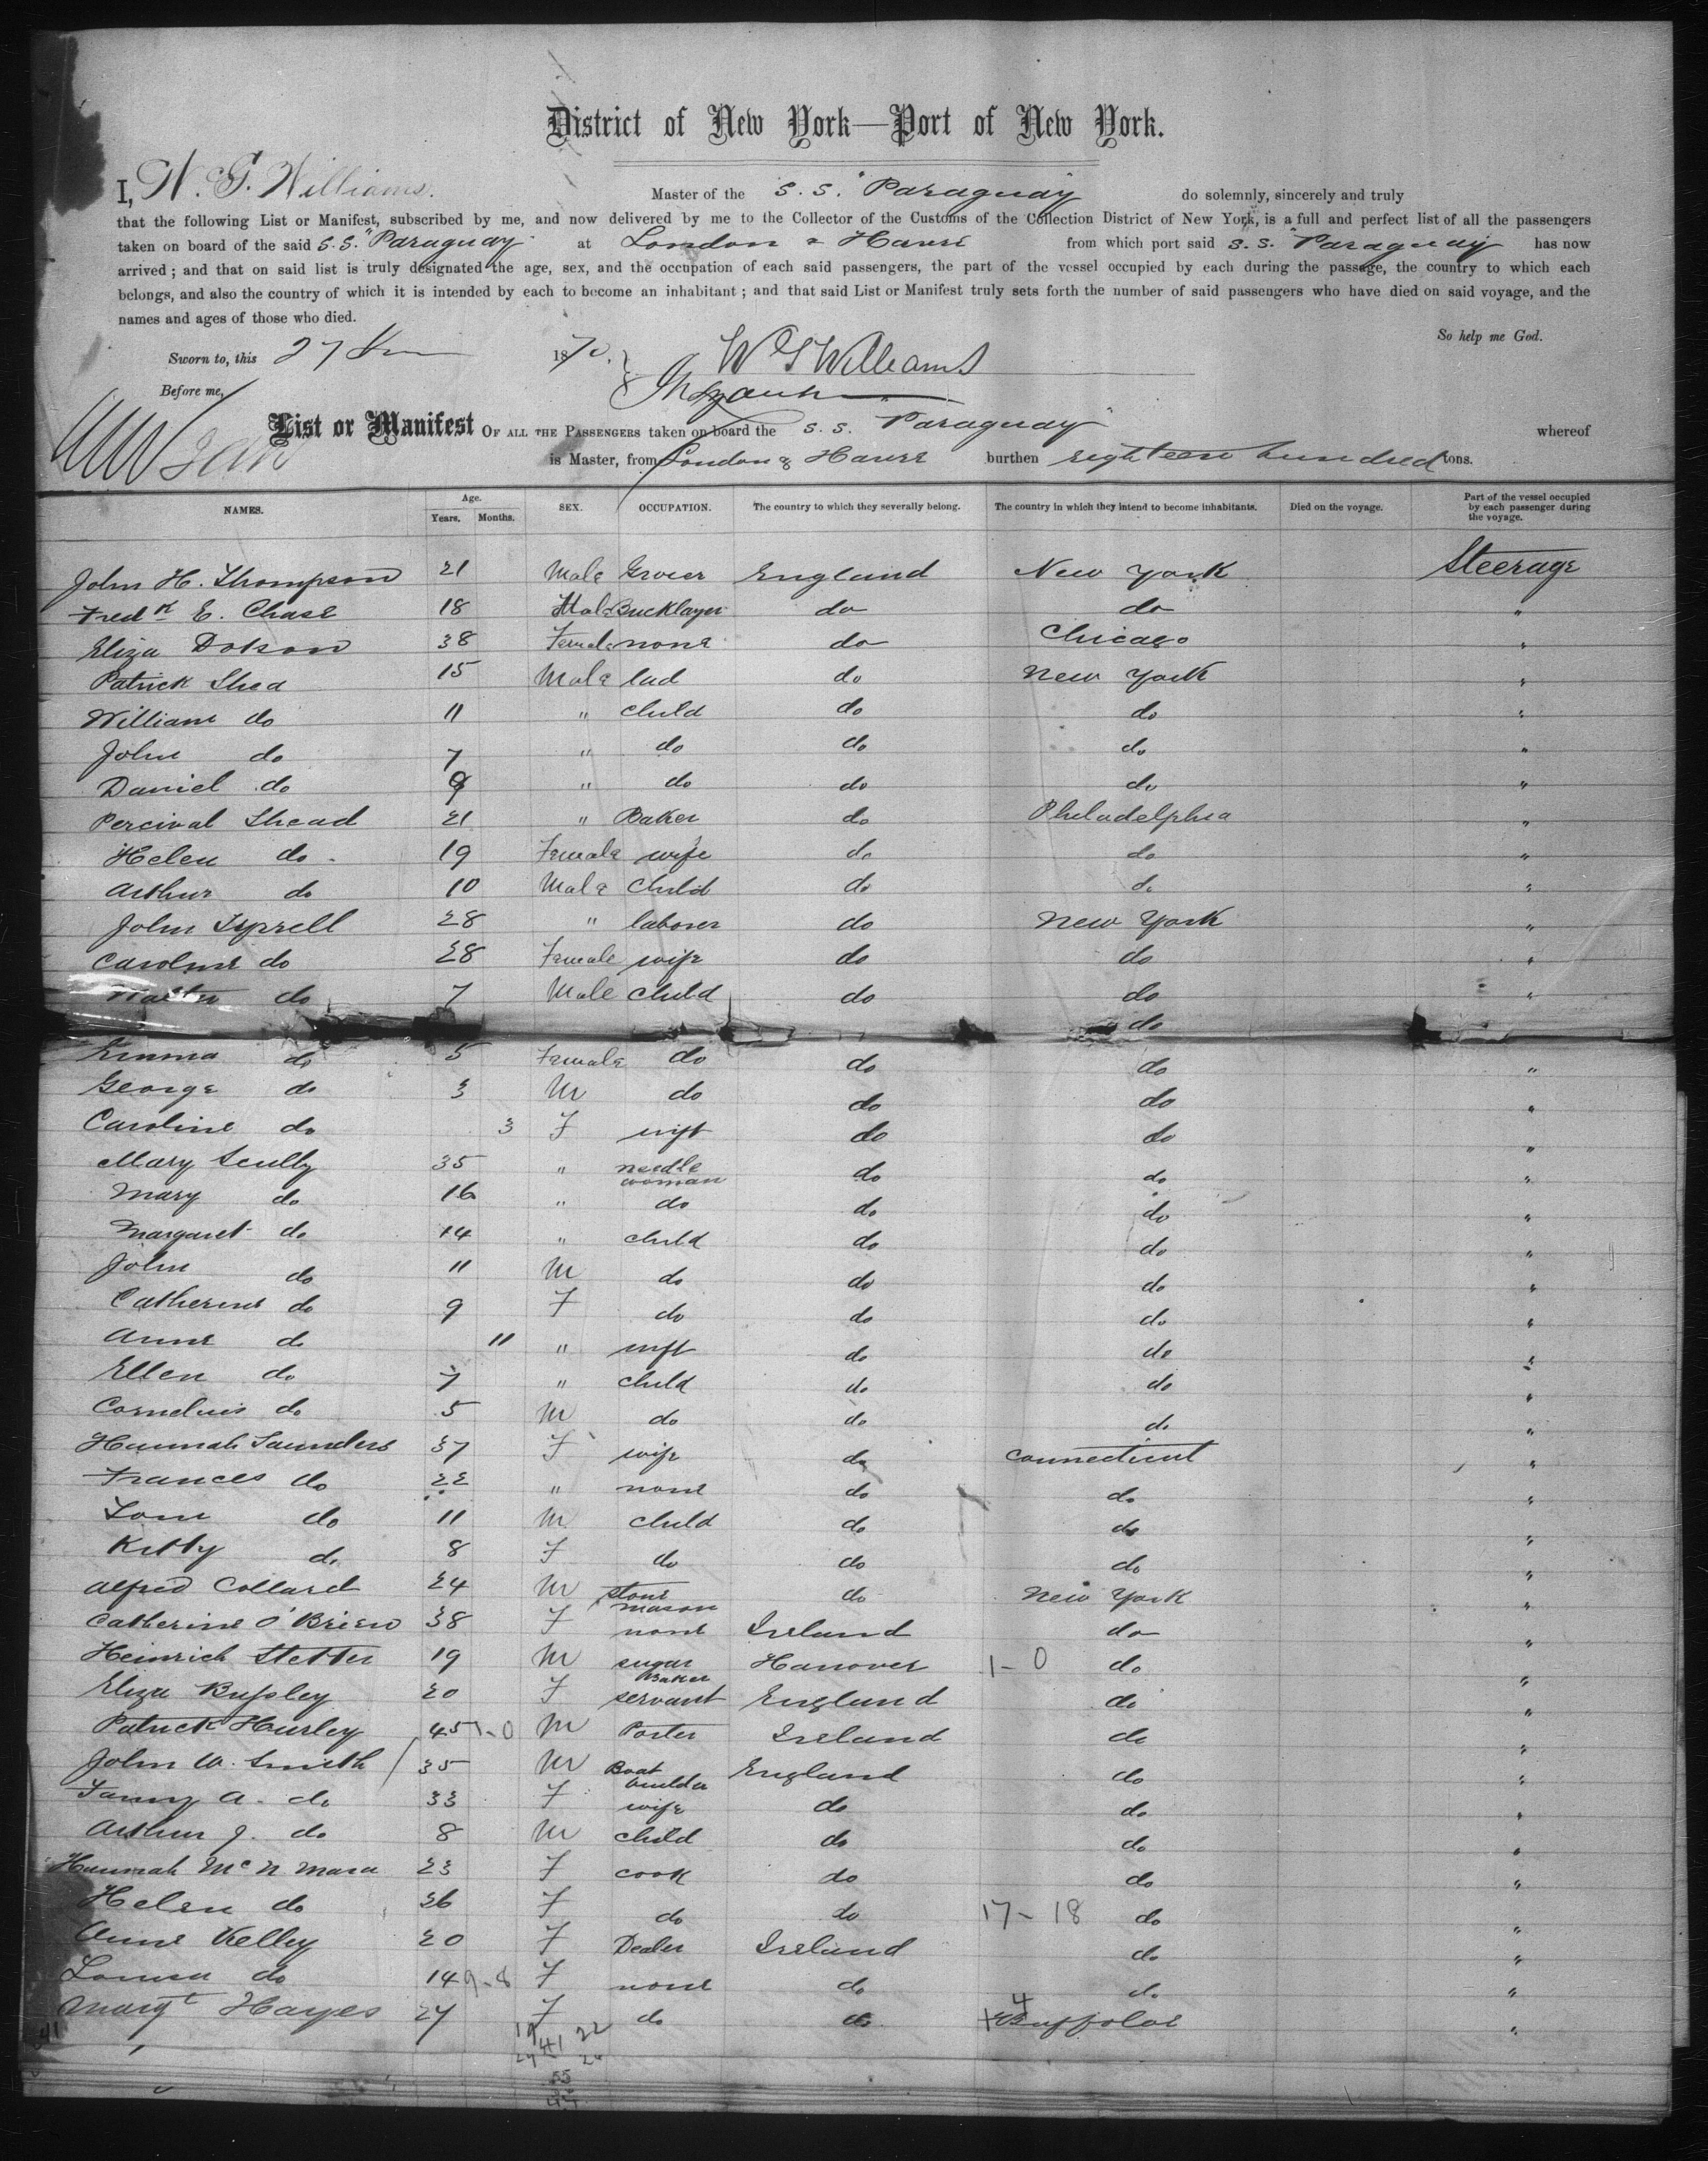 District of New York—Port of New York.
I, W. G. Williams. Master of the S. S. "Paraguay" do solemnly, sincerely and truly
that the following List or Manifest, subscribed by me, and now delivered by me to the Collector of the Customs of the Collection District of New York, is a full and perfect list of all the passengers
taken on board of the said S. S. "Paraguay" at London & Havre from which port said S. S. "Paraguay" has now
arrived; and that on said list is truly designated the age, sex, and the occupation of each said passengers, the part of the vessel occupied by each during the passage, the country to which each
belongs, and also the country of which it is intended by each to become an inhabitant; and that said List or Manifest truly sets forth the number of said passengers who have died on said voyage, and the
names and ages of those who died.
So help me God.
Sworn to, this 27 1870. W G Williams
Before me,
List or Manifest OF ALL THE PASSENGERS taken on board the S. S. "Paraguay" whereof
is Master, from London & Havre burthen eighteen hundred tons.
NAMES. Age. Years. Months. SEX. OCCUPATION. The country to which they severally belong. The country in which they intend to become inhabitants. Died on the voyage. Part of the vessel occupied by each passenger during the voyage.
John H. Thompson 21 Male Grocer England New York Steerage
Fredk E. Chase 18 Male Bucklayer do do "
Eliza Dotson 38 Female none do Chicago "
Patrick Shea 15 Male lad do New York "
William do 11 " child do do "
John do 7 " do do do "
Daniel do 9 " do do do "
Percival Shead 21 " Baker do Philadelphia "
Helen do 19 Female wife do do "
Arthur do 10 Male child do do "
John Tyrrell 28 " laborer do New York "
Caroline do 28 Female wife do do "
Walter do 7 Male child do do "
do
Emma do 5 Female do do do "
George do 3 M do do do "
Caroline do 3 F inft do do "
Mary Scully 35 " needle woman do do "
Mary do 16 " do do do "
Margaret do 14 " child do do "
John do 11 M do do do "
Catherine do 9 F do do do "
Anne do 11 " inft do do "
Ellen do 7 " child do do "
Cornelius do 5 M do do do "
Hannah Saunders 37 F wife do Connecticut "
Frances do 22 " none do do "
Tom do 11 M child do do "
Kitty do 8 F do do do "
Alfred Collard 24 M stone mason do New York "
Catherine O'Brien 38 F none Ireland do "
Heinrich Stetter 19 M sugar Baker Hanover 1-0 do "
Eliza Bussley 20 F servant England do "
Patrick Hurley 45 1-0 M Porter Ireland do "
John W. Smith 35 M Boat builder England do "
Fanny A. do 33 F wife do do "
Arthur J. do 8 M child do do "
Hannah McNmara 23 F cook do do "
Helen do 26 F do do 17-18 do "
Anne Kelley 20 F Dealer Ireland do "
Louisa do 14 9-8 F none do do "
Margt Hayes 27 F do do Buffaloe "
41 19 41 22
55